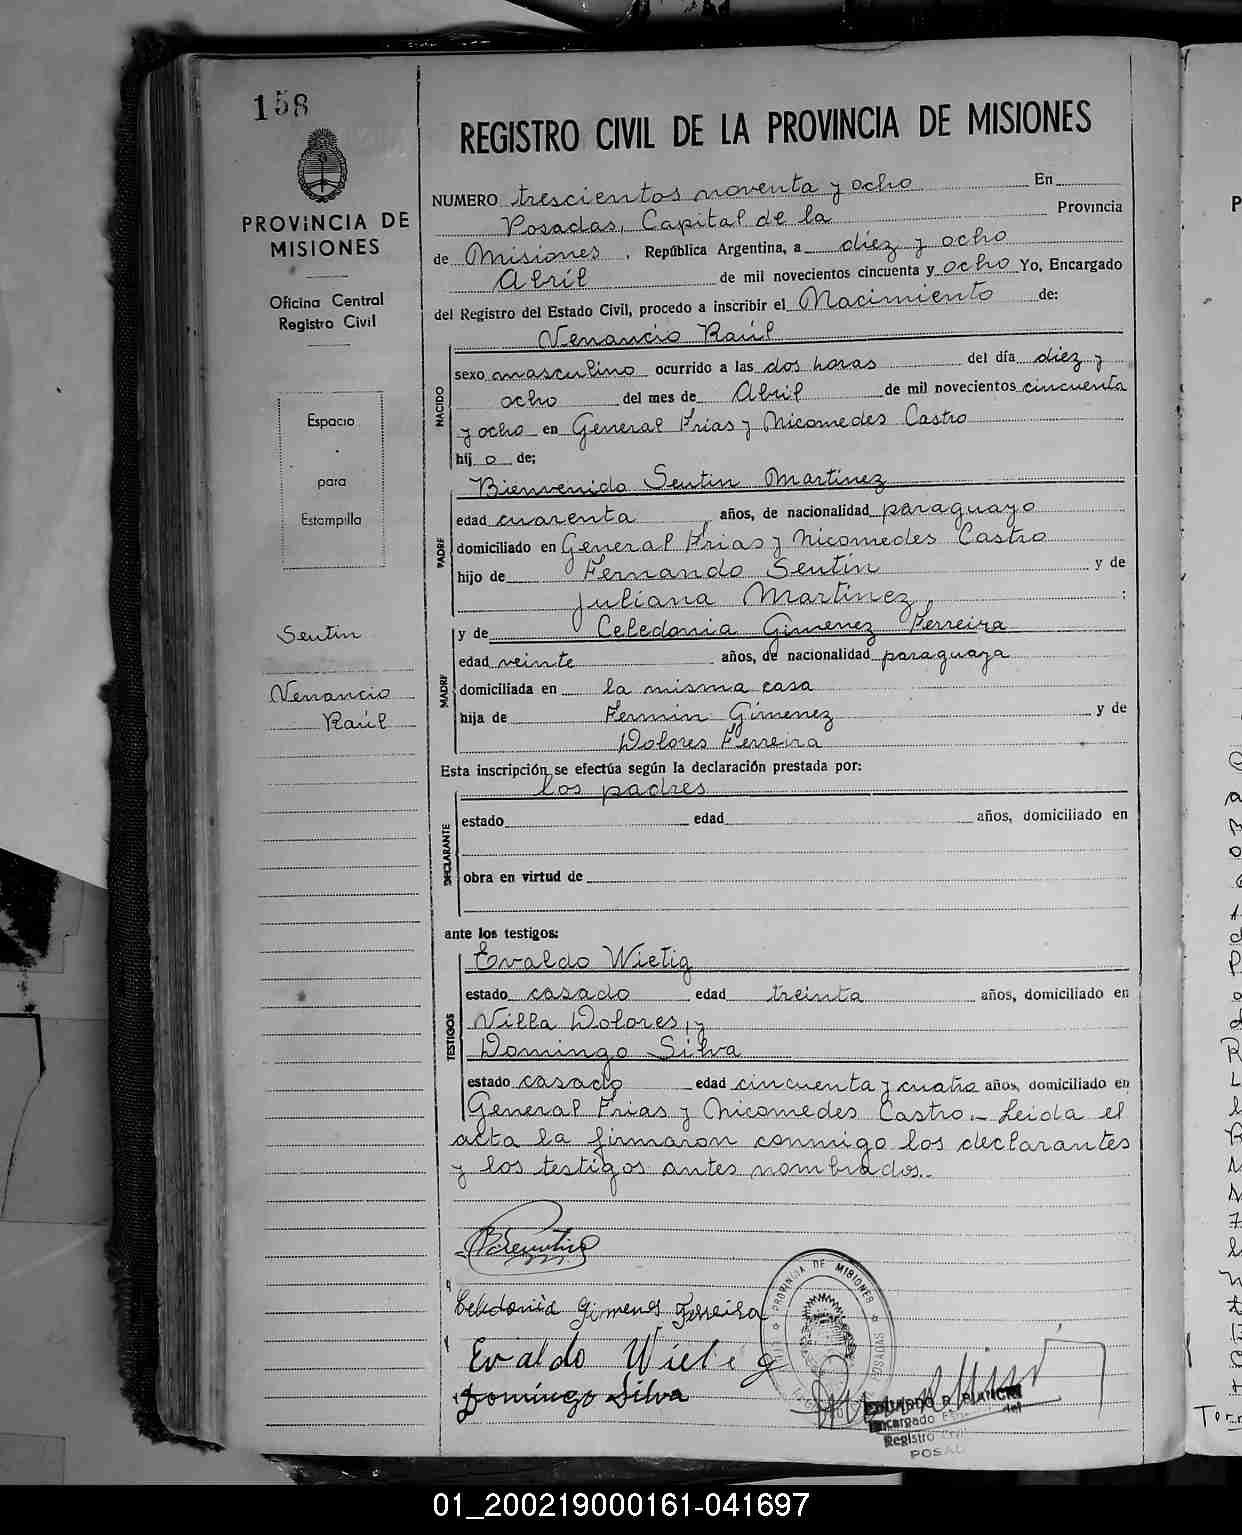 158
PROVINCIA DE
MISIONES
Oficina Central
Registro Civil
Espacio
para
Estampilla
Sentin
Venancio
Raúl
REGISTRO CIVIL DE LA PROVINCIA DE MISIONES
NUMERO trescientos noventa y ocho En
Posadas, Capital de la Provincia
de Misiones, República Argentina, a diez y ocho
Abril de mil novecientos cincuenta y ocho Yo, Encargado
del Registro del Estado Civil, procedo a inscribir el Nacimiento de:
Venancio Raúl
NACIDO
sexo masculino ocurrido a las dos horas del día diez y
ocho del mes de Abril de mil novecientos cincuenta
y ocho en General Frias y Nicomedes Castro
hij o de;
Bienvenido Sentin Martínez
PADRE
edad cuarenta, años, de nacionalidad paraguayo
domiciliado en General Frias y Nicomedes Castro
hijo de Fernando Sentin y de
Juliana Martínez :
y de Celedonia Gimenez Ferreira
MADRE
edad veinte años, de nacionalidad paraguaya
domiciliada en la misma casa
hija de Fermin Gimenez y de
Dolores Ferreira
Esta inscripción se efectúa según la declaración prestada por:
los padres
DECLARANTE
estado edad años, domiciliado en
obra en virtud de
ante los testigos:
Evaldo Wietig
TESTIGOS
estado casado edad treinta años, domiciliado en
Villa Dolores, y
Domingo Silva
estado casado edad cincuenta y cuatro años, domiciliado en
General Frias y Nicomedes Castro.- Leida el
acta la firmaron conmigo los declarantes
y los testigos antes nombrados.-
Celedonia Gimenes Ferreira
Evaldo Wietig
Domingo Silva
PROVINCIA DE MISIONES
POSADAS
EDUARDO R. BIANCHI
Encargado
Registro Civil
POSAD
01_200219000161-041697